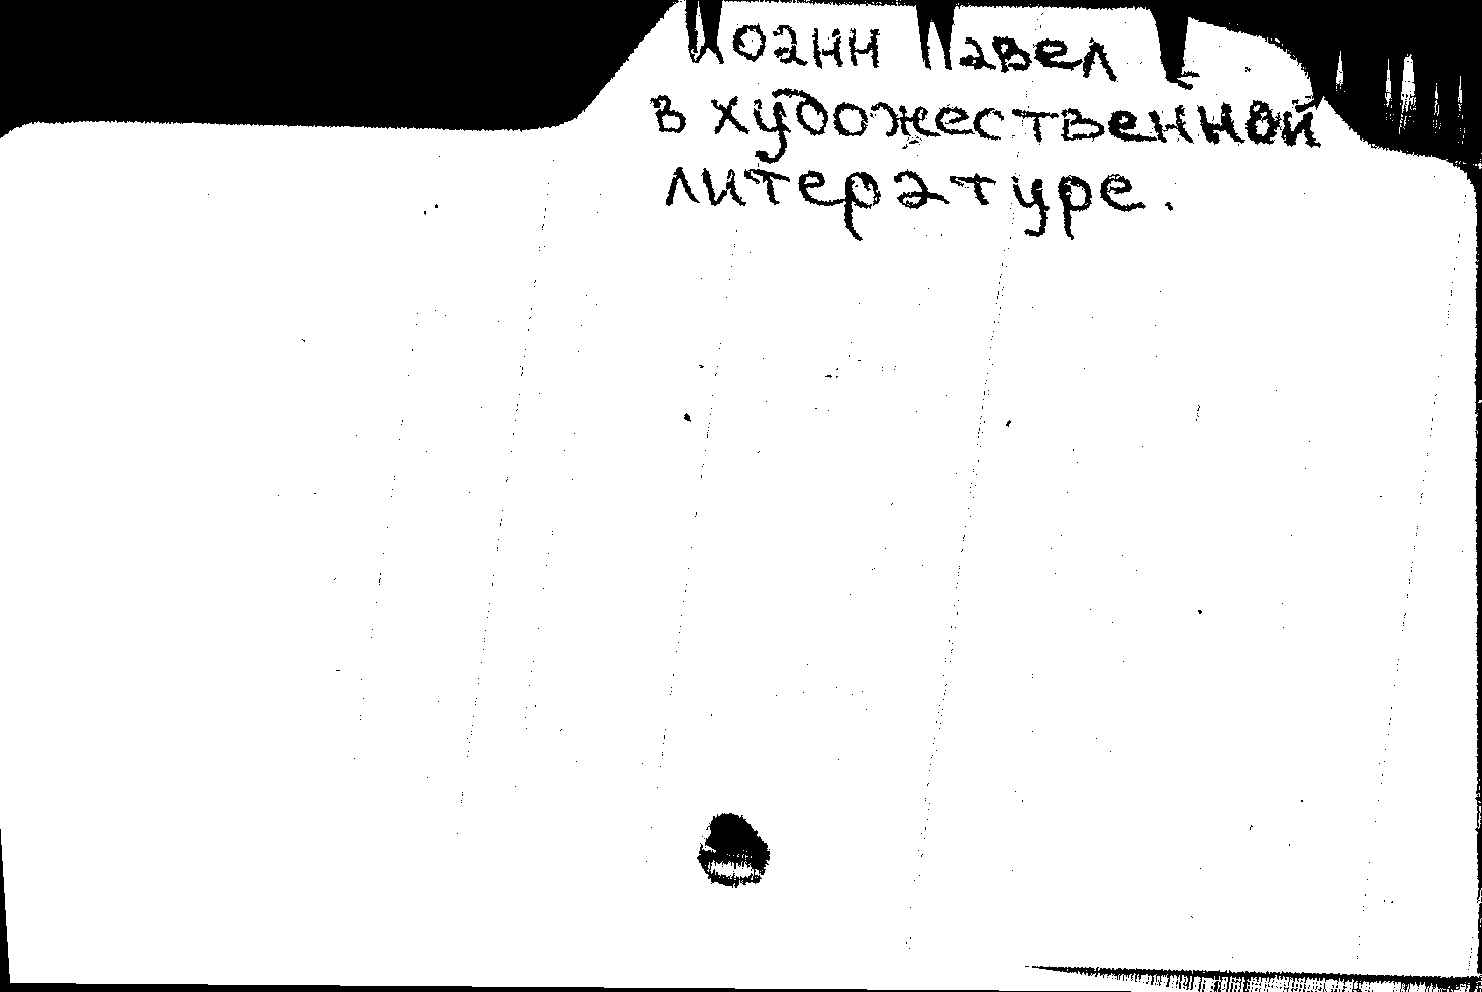 Иоанн Павел
в художественной
литературе.